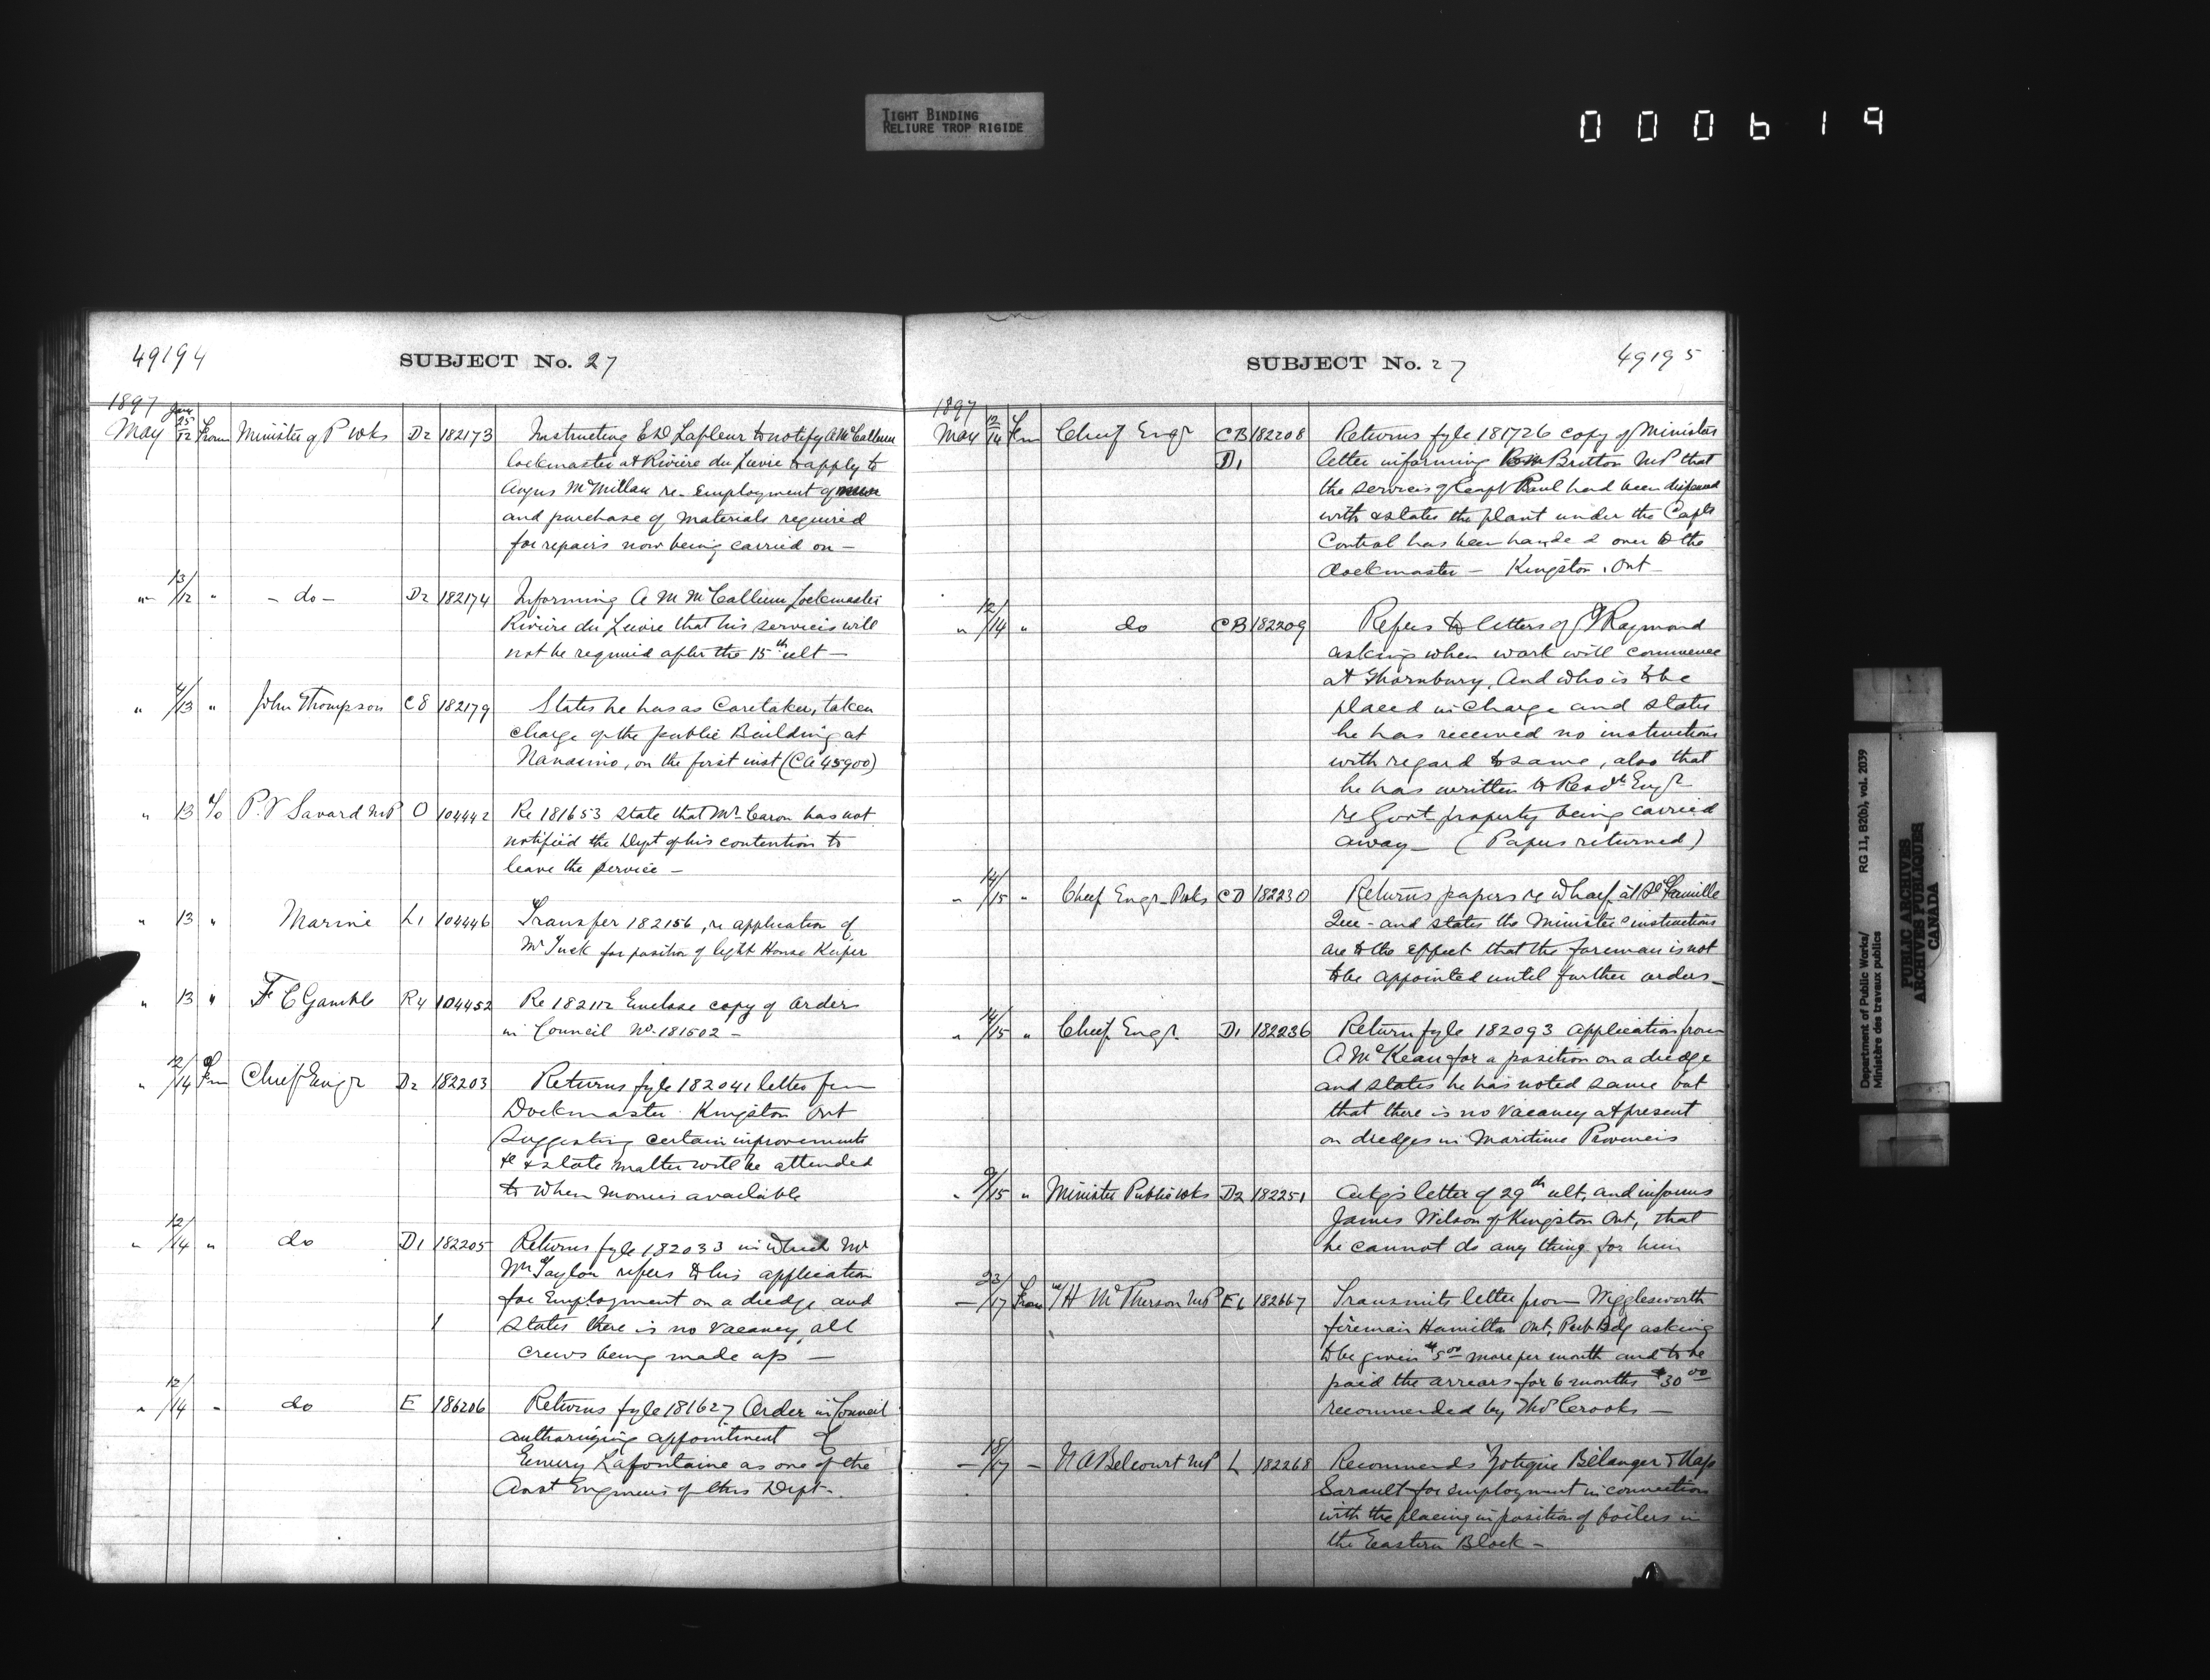 TIGHT BINDING
RELIURE TROP RIGIDE
000619
49194
SUBJECT No. 27
1897
May Jany 25/12 From Minister of P Wks D2 182173 Instructing E D Lafleur to notify A McCallum
Lockmaster at Rivière du Lievre to apply to
Angus McMillan re- Employment of men
and purchase of materials required
for repairs now being carried on —
" 13/12 " - do - D2 182174 Informing A M McCallum Lockmaster
Rivière du Lievre that his services will
not be required after the 15th ult —
" 4/13 " John Thompson C8 182179 States he has as Caretaker, taken
charge of the public Building at
Nanaimo, on the first inst (CA 45900)
" 13 To P. V Savard MP O 104442 Re 181653 state that Mr Caron has not
notified the Dept of his contention to
leave the service —
" 13 " Marine L1 104446 Transfer 182156, re application of
Mr Tuck for position of light House Keeper
" 13 " F C Gamble R4 104452 Re 182112 Enclose copy of Orders
in Council No. 181502 —
" 12/14 Frm Chief Engr D2 182203 Returns fyle 182041 letter frm
Dockmaster Kingston Ont
suggesting certain improvements
&c & state matter will be attended
to when monies available
" 12/14 " do D1 182205 Returns fyle 182033 in which Mr
Wm Taylor refers to his application
for Employment on a dredge and
states there is no vacancy, all
crews being made up —
" 12/14 " do E 186206 Returns fyle 181627 Order in Council
authorizing appointment of
Emery Lafontaine as one of the
Asst Engineers of this Dept.
SUBJECT No. 27
49195
1897
May 12/14 Frm Chief Engr CB 182208 Returns fyle 181726 copy of Ministers
D1 letter informing Britton MP that
the services of Capt Paul had been dispensed
with & states the plant under the Capts
Control has been handed over to the
dockmaster — Kingston. Ont —
" 12/14 " do CB 182209 Refers to letters of Raymond
asking when work will commence
at Thornbury, And who is to be
placed in charge and states
he has received no instructions
with regard to same, also that
he has written to Resdt Engr
re Govt property being carried
away — (Papers returned)
" 14/15 " Chief Engr P Wks CD 182230 Returns papers re wharf at Ste Famille
Que - and states the Ministers instructions
are to the effect that the foreman is not
to be appointed until further orders —
" 14/15 " Chief Engr D1 182236 Return fyle 182093 application from
A McKean for a position on a dredge
and states he has noted same but
that there is no vacancy at present
on dredges in Maritime Provinces
" 9/15 " Minister Public Wks D2 182251 Ackgs letter of 29th ult, and informs
James Wilson of Kingston Ont, that
he cannot do any thing for him
— 23/17 From H McPherson MP E6 182667 Transmits letter from Wigglesworth
fireman Hamilton Ont, Pub Bdg asking
to be given $5.00 more per month and to be
paid the arrears for 6 months $30.00
recommended by Thos Crooks —
— 15/17 — N A Belcourt MP L 182268 Recommends Zotique Bélanger & Nap
Sarault for employment in connection
with the placing in position of boilers in
the Eastern Block —
Department of Public Works/ RG 11, B2(b), vol. 2039
Ministère des travaux publics
PUBLIC ARCHIVES
ARCHIVES PUBLIQUES
CANADA